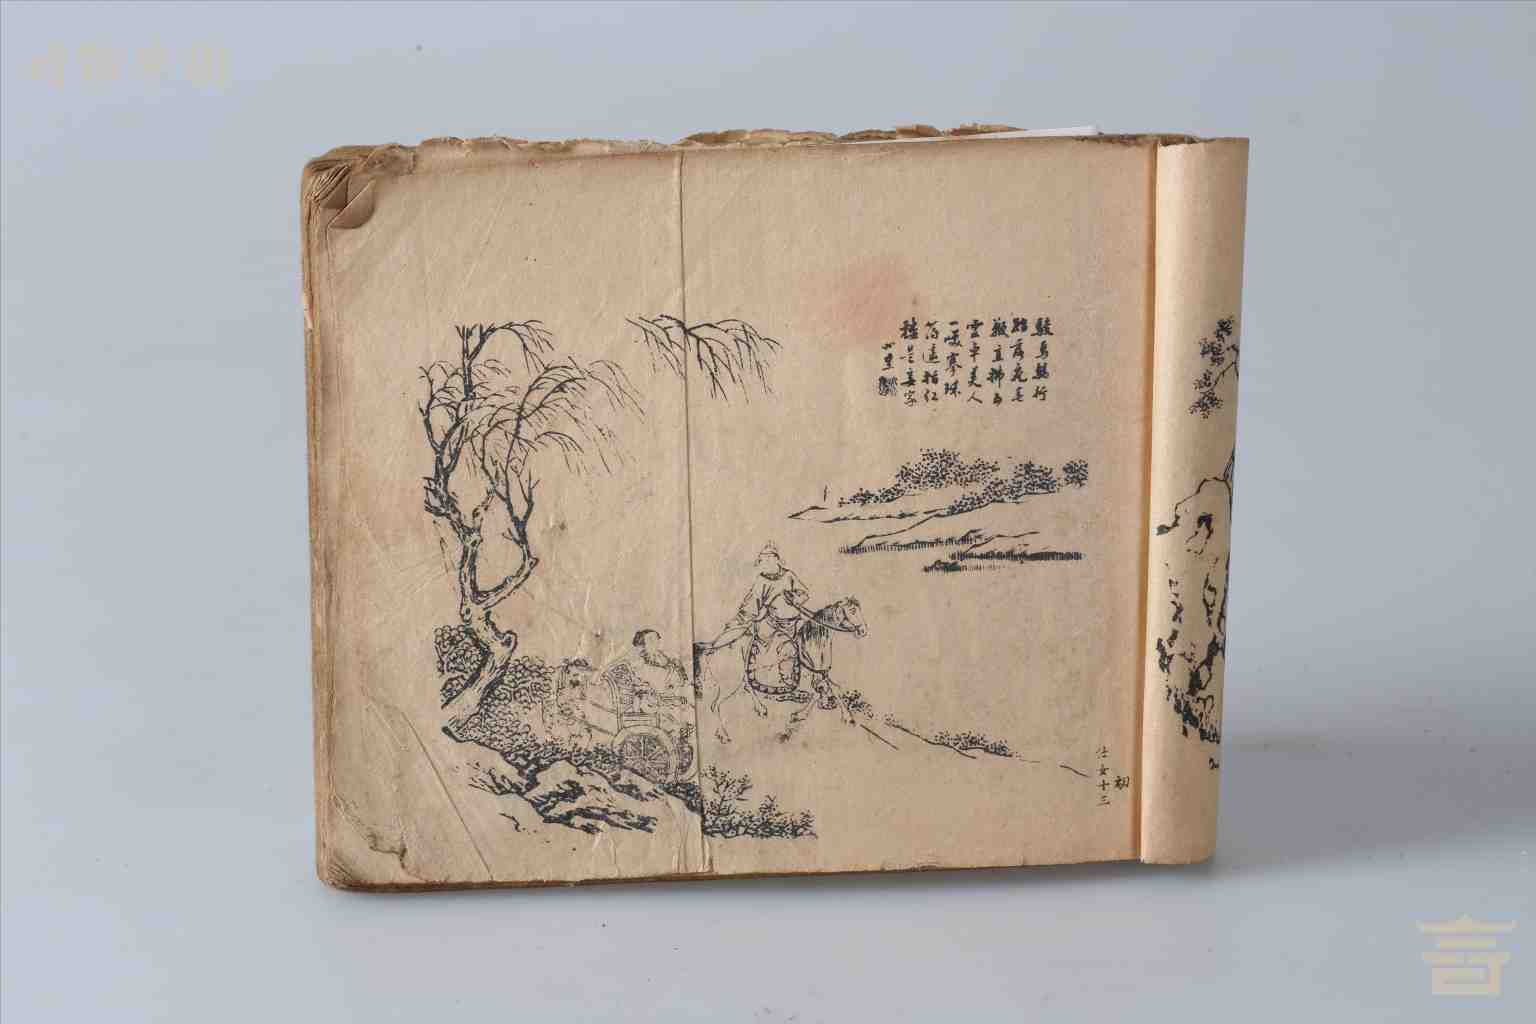 駿馬驕行
踏落花垂
鞭直拂五
雲車美人
一咲搴珠
箔遙指紅
樓是妾家
初
仕女十三